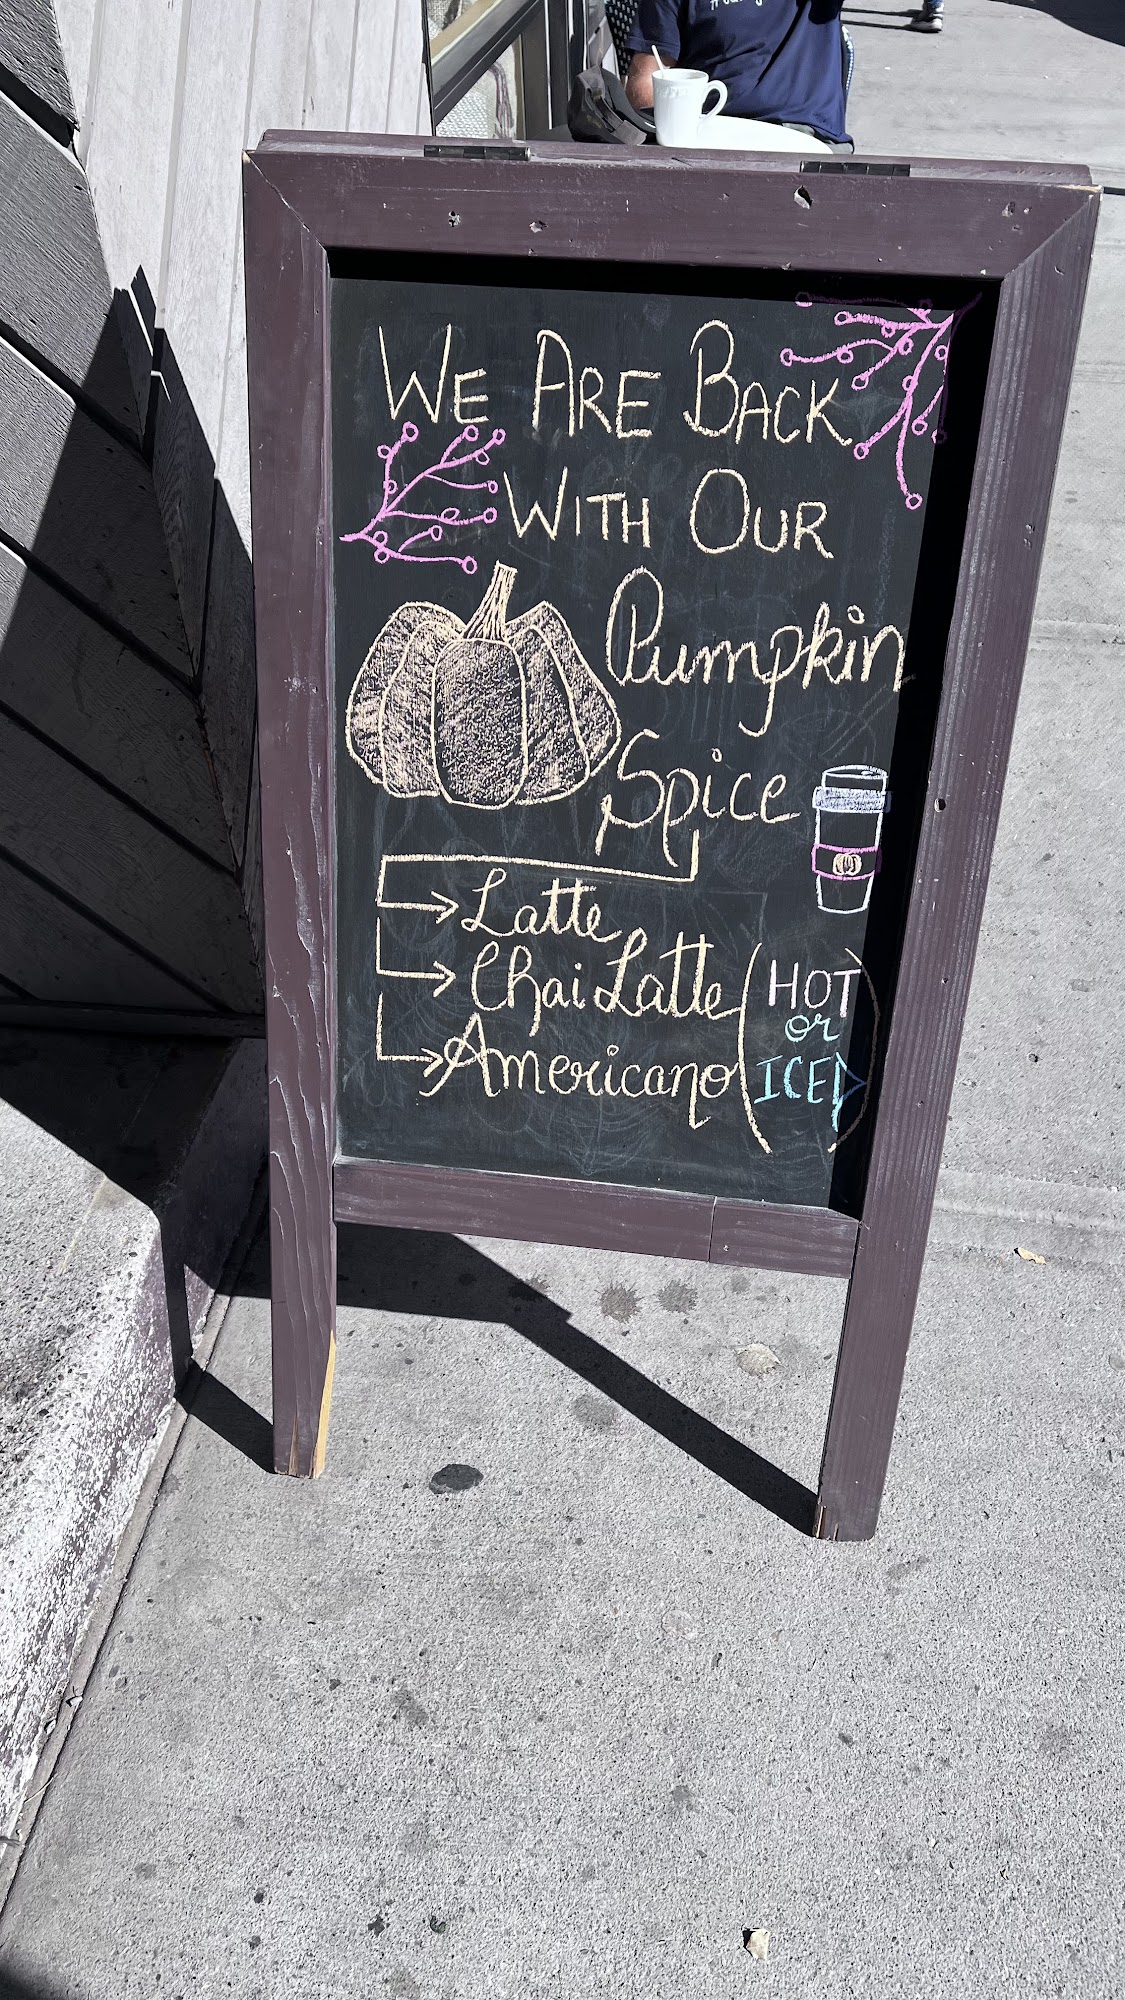 We Are Back
With Our
Pumpkin
Spice
Latte
Chai Latte
Americano
(HOT
or
ICED)